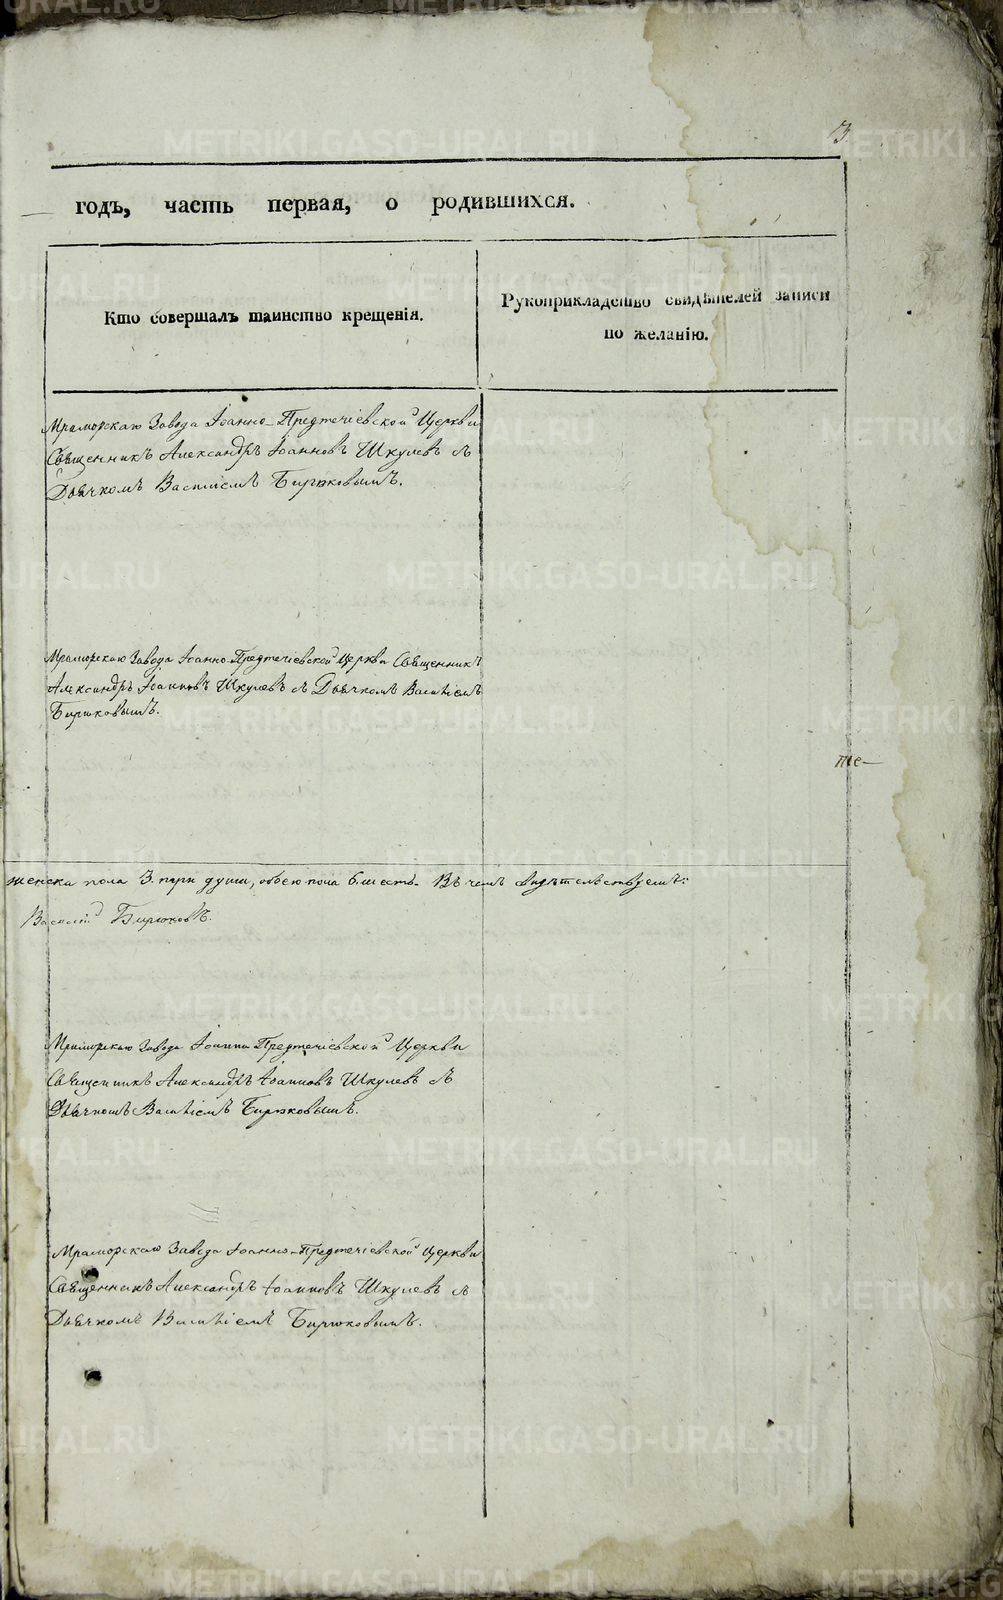 3
годъ, часть первая, о родившихся.
Кто совершалъ таинство крещенія.
Рукоприкладство свидѣтелей записи
по желанію.
Мраморскаго Завода Іоанно-Предтечіевской Церкви
Священникъ Александръ Іоанновъ Шкулевъ съ
Дьячкомъ Василіемъ Бирюковымъ.
Мраморскаго Завода Іоанно-Предтечіевской Церкви Священникъ
Александръ Іоанновъ Шкулевъ съ Дьячкомъ Василіемъ
Бирюковымъ.
женска пола 3. три души, обоего пола 6. шесть. Въ чемъ свидѣтельствуемъ:
Василій Бирюковъ.
Мраморскаго Завода Іоанно Предтечіевской Церкви
Священникъ Александръ Іоанновъ Шкулевъ съ
Дьячкомъ Василіемъ Бирюковымъ.
Мраморскаго Завода Іоанно-Предтечіевской Церкви
Священникъ Александръ Іоанновъ Шкулевъ съ
Дьячкомъ Василіемъ Бирюковымъ.
METRIKI.GASO-URAL.RU